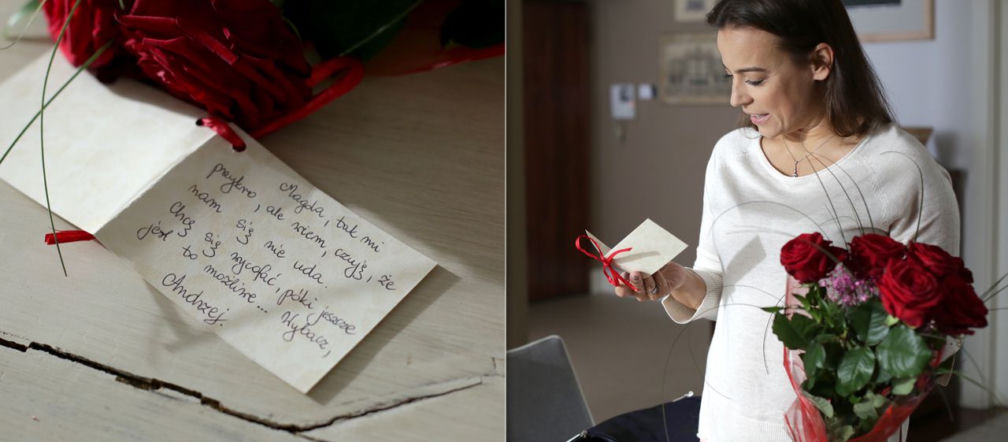 Magda, tak mi
przykro, ale wiem, czuję, że
nam się nie uda.
Chcę się wycofać, póki jeszcze
jest to możliwe... Wybacz,
Andrzej.